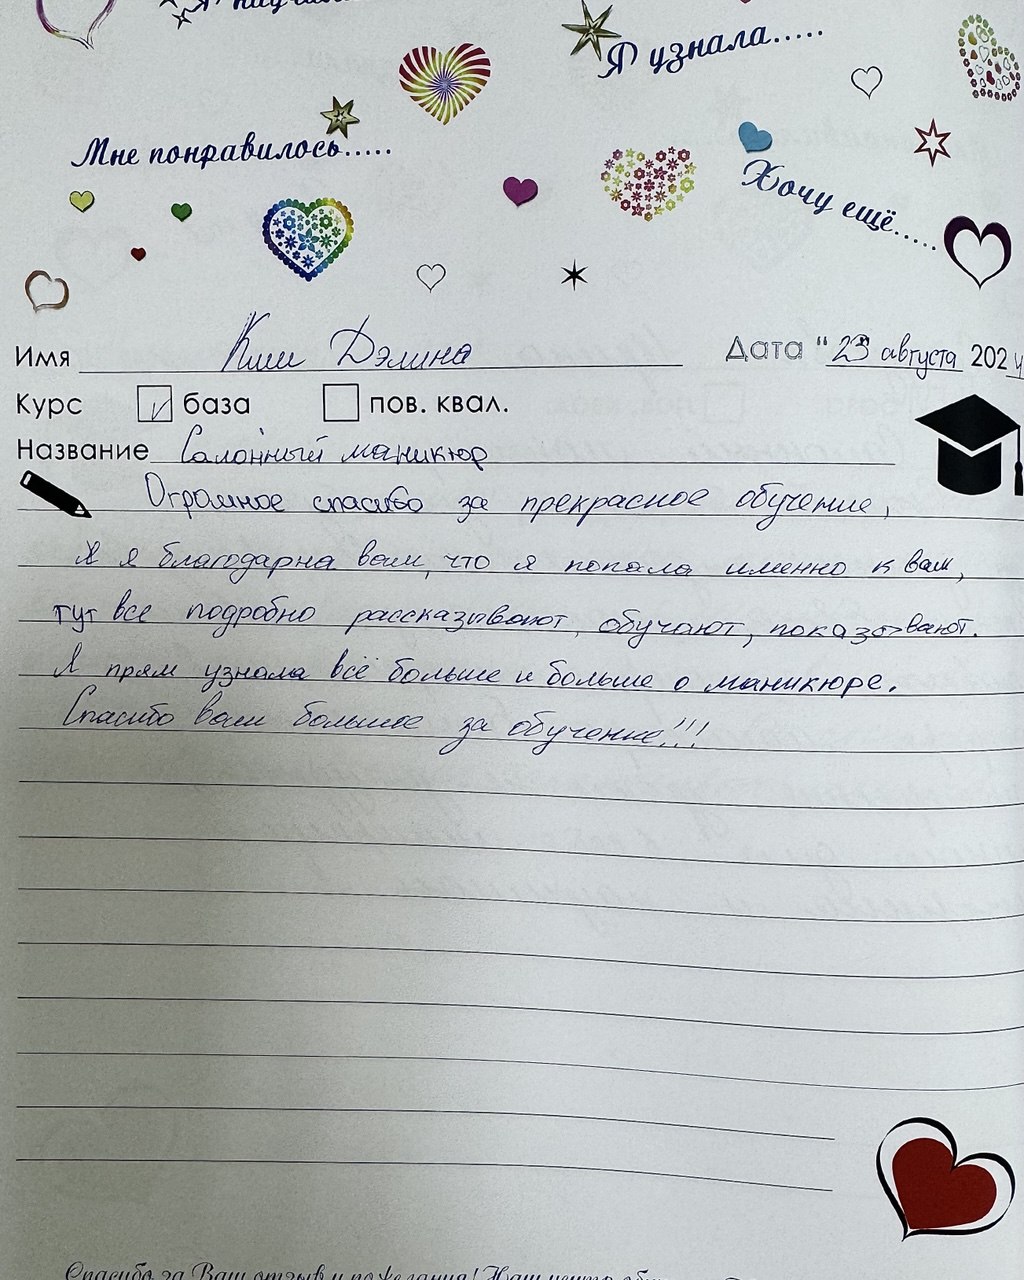 Я узнала.....
Мне понравилось.....
Хочу ещё.....
Имя Ким Дэлина Дата "23 августа 2024
Курс база пов. квал.
Название Салонный маникюр
Огромное спасибо за прекрасное обучение,
Я я благодарна вам, что я попала именно к вам,
тут все подробно рассказывают, обучают, показывают.
Я прям узнала всё больше и больше о маникюре.
Спасибо вам большое за обучение!!!
Спасибо за Ваш отзыв и пожелания! Наш центр